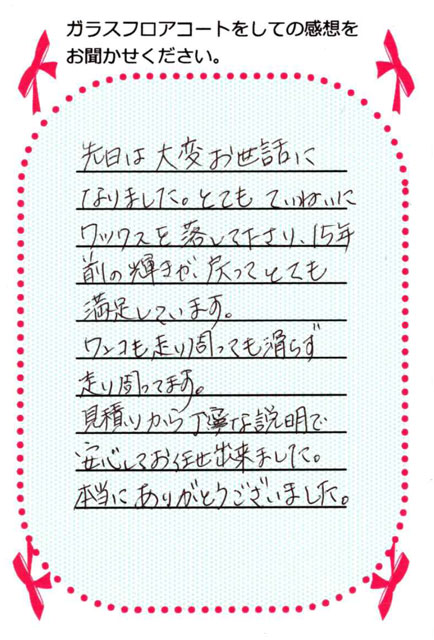 ガラスフロアコートをしての感想を
お聞かせください。
先日は大変お世話に
なりました。とても ていねいに
ワックスを落して下さり、15年
前の輝きが、戻ってとても
満足しています。
ワンコも走り周っても滑らず
走り周ってます。
見積りから丁寧な説明で
安心してお任せ出来ました。
本当にありがとうございました。